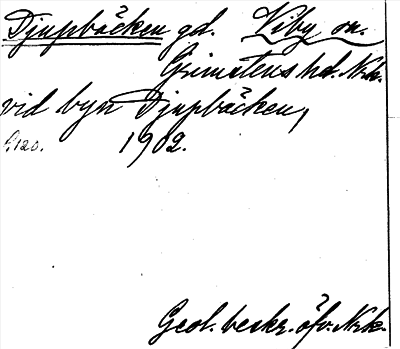 Djupbäcken gd. Viby sn.
Grimstens hd. Nrk.
vid byn Djupbäcken,
s. 120. 1902.
Geol. beskr. öfv. Nrk.